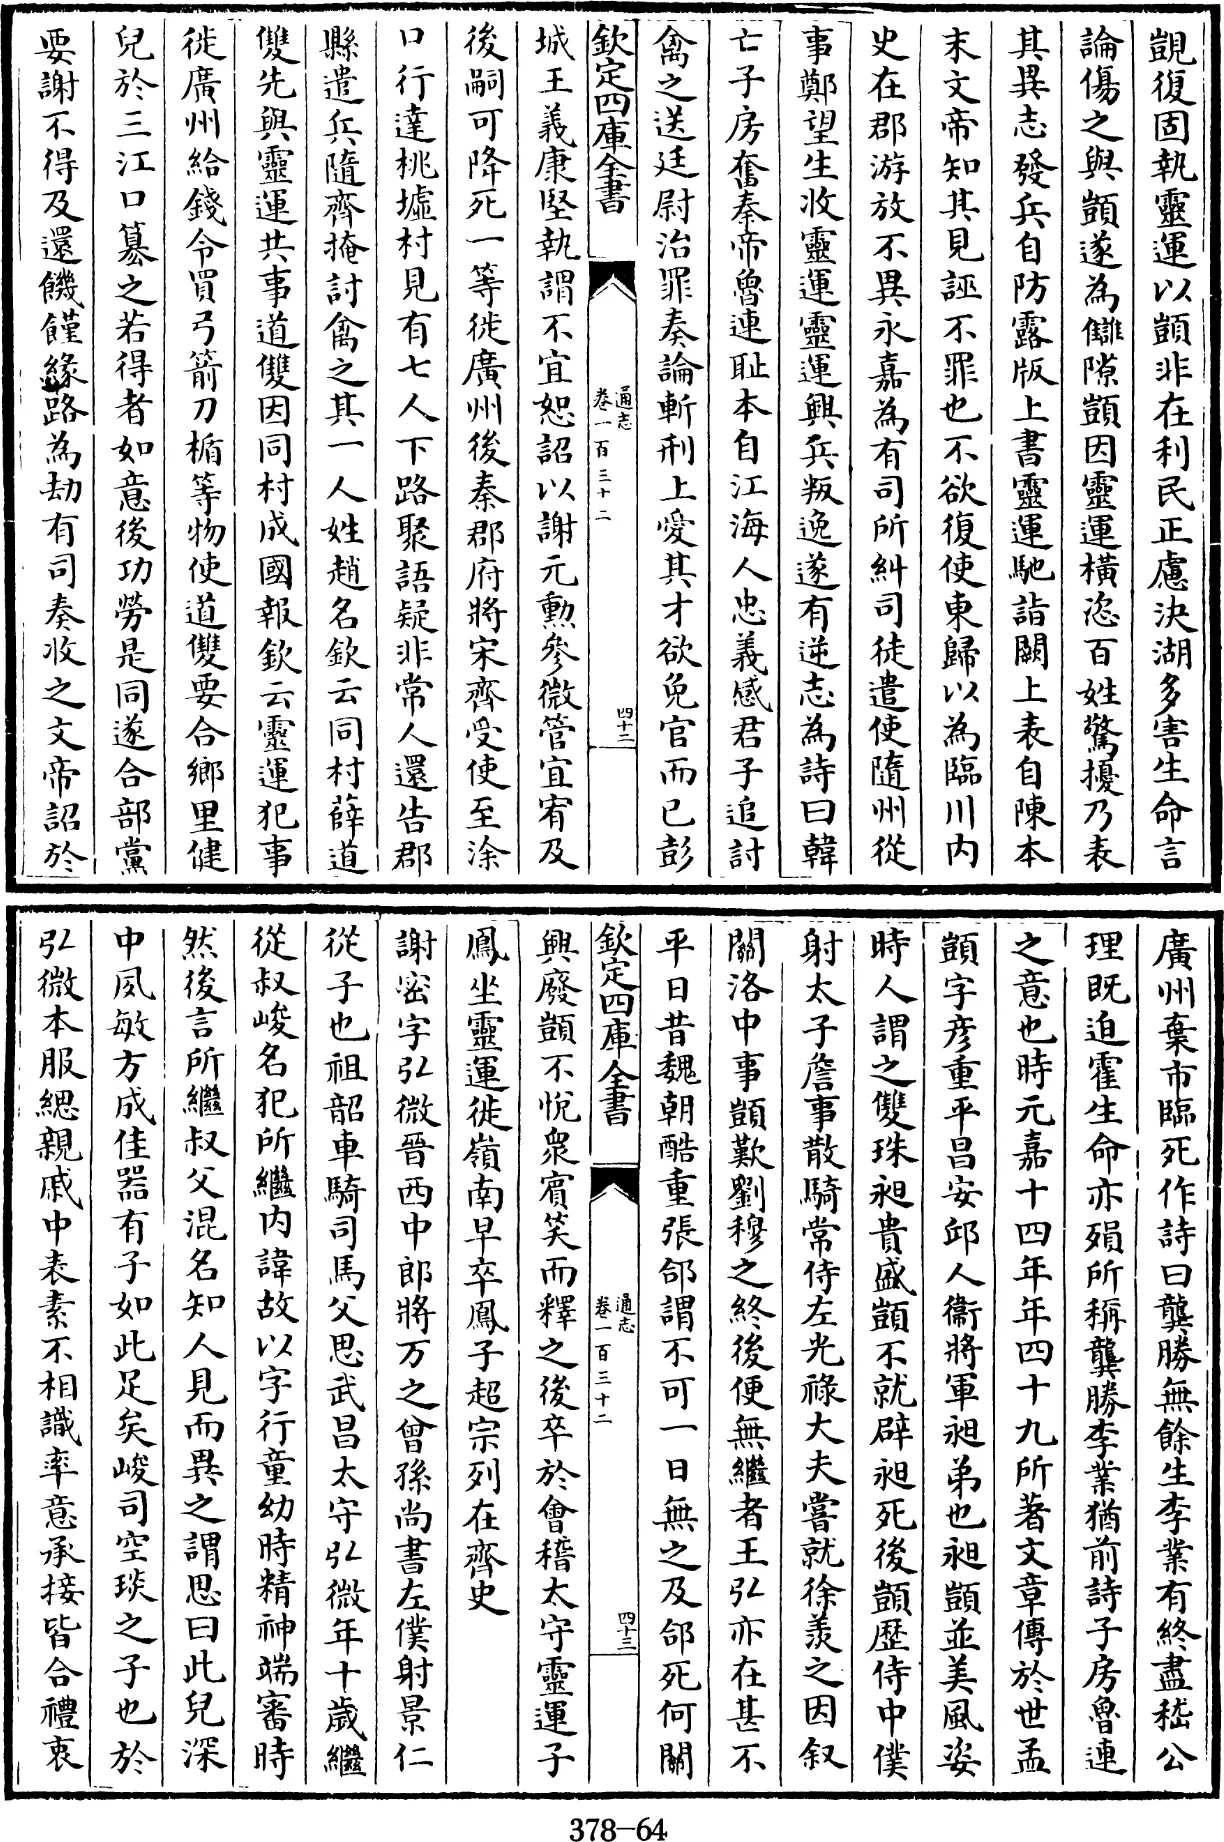 顗復固執靈運以顗非在利民正慮決湖多害生命言
論傷之與顗遂為讎隙顗因靈運橫恣百姓驚擾乃表
其異志發兵自防露版上書靈運馳詣闕上表自陳本
末文帝知其見誣不罪也不欲復使東歸以為臨川内
史在郡游放不異永嘉為有司所糾司徒遣使隨州從
事鄭望生收靈運靈運興兵叛逸遂有逆志為詩曰韓
亡子房奮秦帝魯連耻本自江海人忠義感君子追討
禽之送廷尉治罪奏論斬刑上愛其才欲免官而已彭
欽定四庫全書
通志
卷一百三十二
四十二
城王義康堅執謂不宜恕詔以謝元勲參微管宜宥及
後嗣可降死一等徙廣州後秦郡府將宋齊受使至涂
口行達桃墟村見有七人下路聚語疑非常人還告郡
縣遣兵隨齊掩討禽之其一人姓趙名欽云同村薛道
雙先與靈運共事道雙因同村成國報欽云靈運犯事
徙廣州給錢令買弓箭刀楯等物使道雙要合鄉里健
兒於三江口篡之若得者如意後功勞是同遂合部黨
要謝不得及還饑饉緣路為劫有司奏收之文帝詔於
廣州棄市臨死作詩曰龔勝無餘生李業有終盡嵇公
理既迫霍生命亦殞所稱龔勝李業猶前詩子房魯連
之意也時元嘉十四年年四十九所著文章傳於世孟
顗字彦重平昌安邱人衞將軍昶弟也昶顗並美風姿
時人謂之雙珠昶貴盛顗不就辟昶死後顗歴侍中僕
射太子詹事散騎常侍左光祿大夫嘗就徐羨之因叙
關洛中事顗歎劉穆之終後便無繼者王弘亦在甚不
平曰昔魏朝酷重張郃謂不可一日無之及郃死何關
欽定四庫全書
通志
卷一百三十二
四十三
興廢顗不悦衆賓笑而釋之後卒於會稽太守靈運子
鳳坐靈運徙嶺南早卒鳳子超宗列在齊史
謝密字弘微晉西中郎將万之曾孫尚書左僕射景仁
從子也祖韶車騎司馬父思武昌太守弘微年十歳繼
從叔峻名犯所繼内諱故以字行童幼時精神端審時
然後言所繼叔父混名知人見而異之謂思曰此兒深
中夙敏方成佳器有子如此足矣峻司空琰之子也於
弘微本服緦親戚中表素不相識率意承接皆合禮衷
378-64